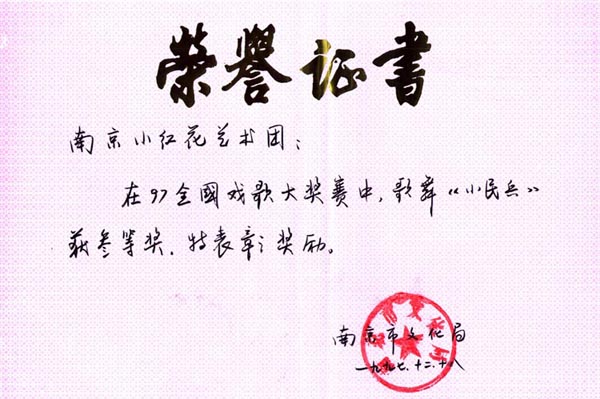 榮譽证書
南京小红花艺术团：
在97全國戏歌大奖赛中，歌舞《小民兵》
获叁等奖．特表彰奖励。
南京市文化局
一九九七．十二．十八